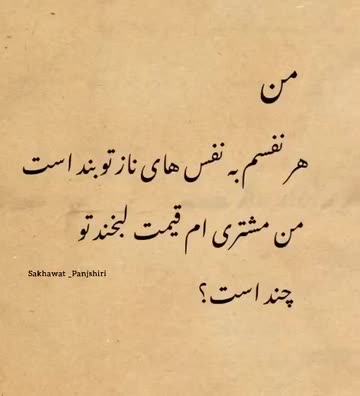 من
هر نفسم به نفس های ناز تو بند است
من مشتری ام قیمت لبخند تو
Sakhawat _Panjshiri
چند است؟